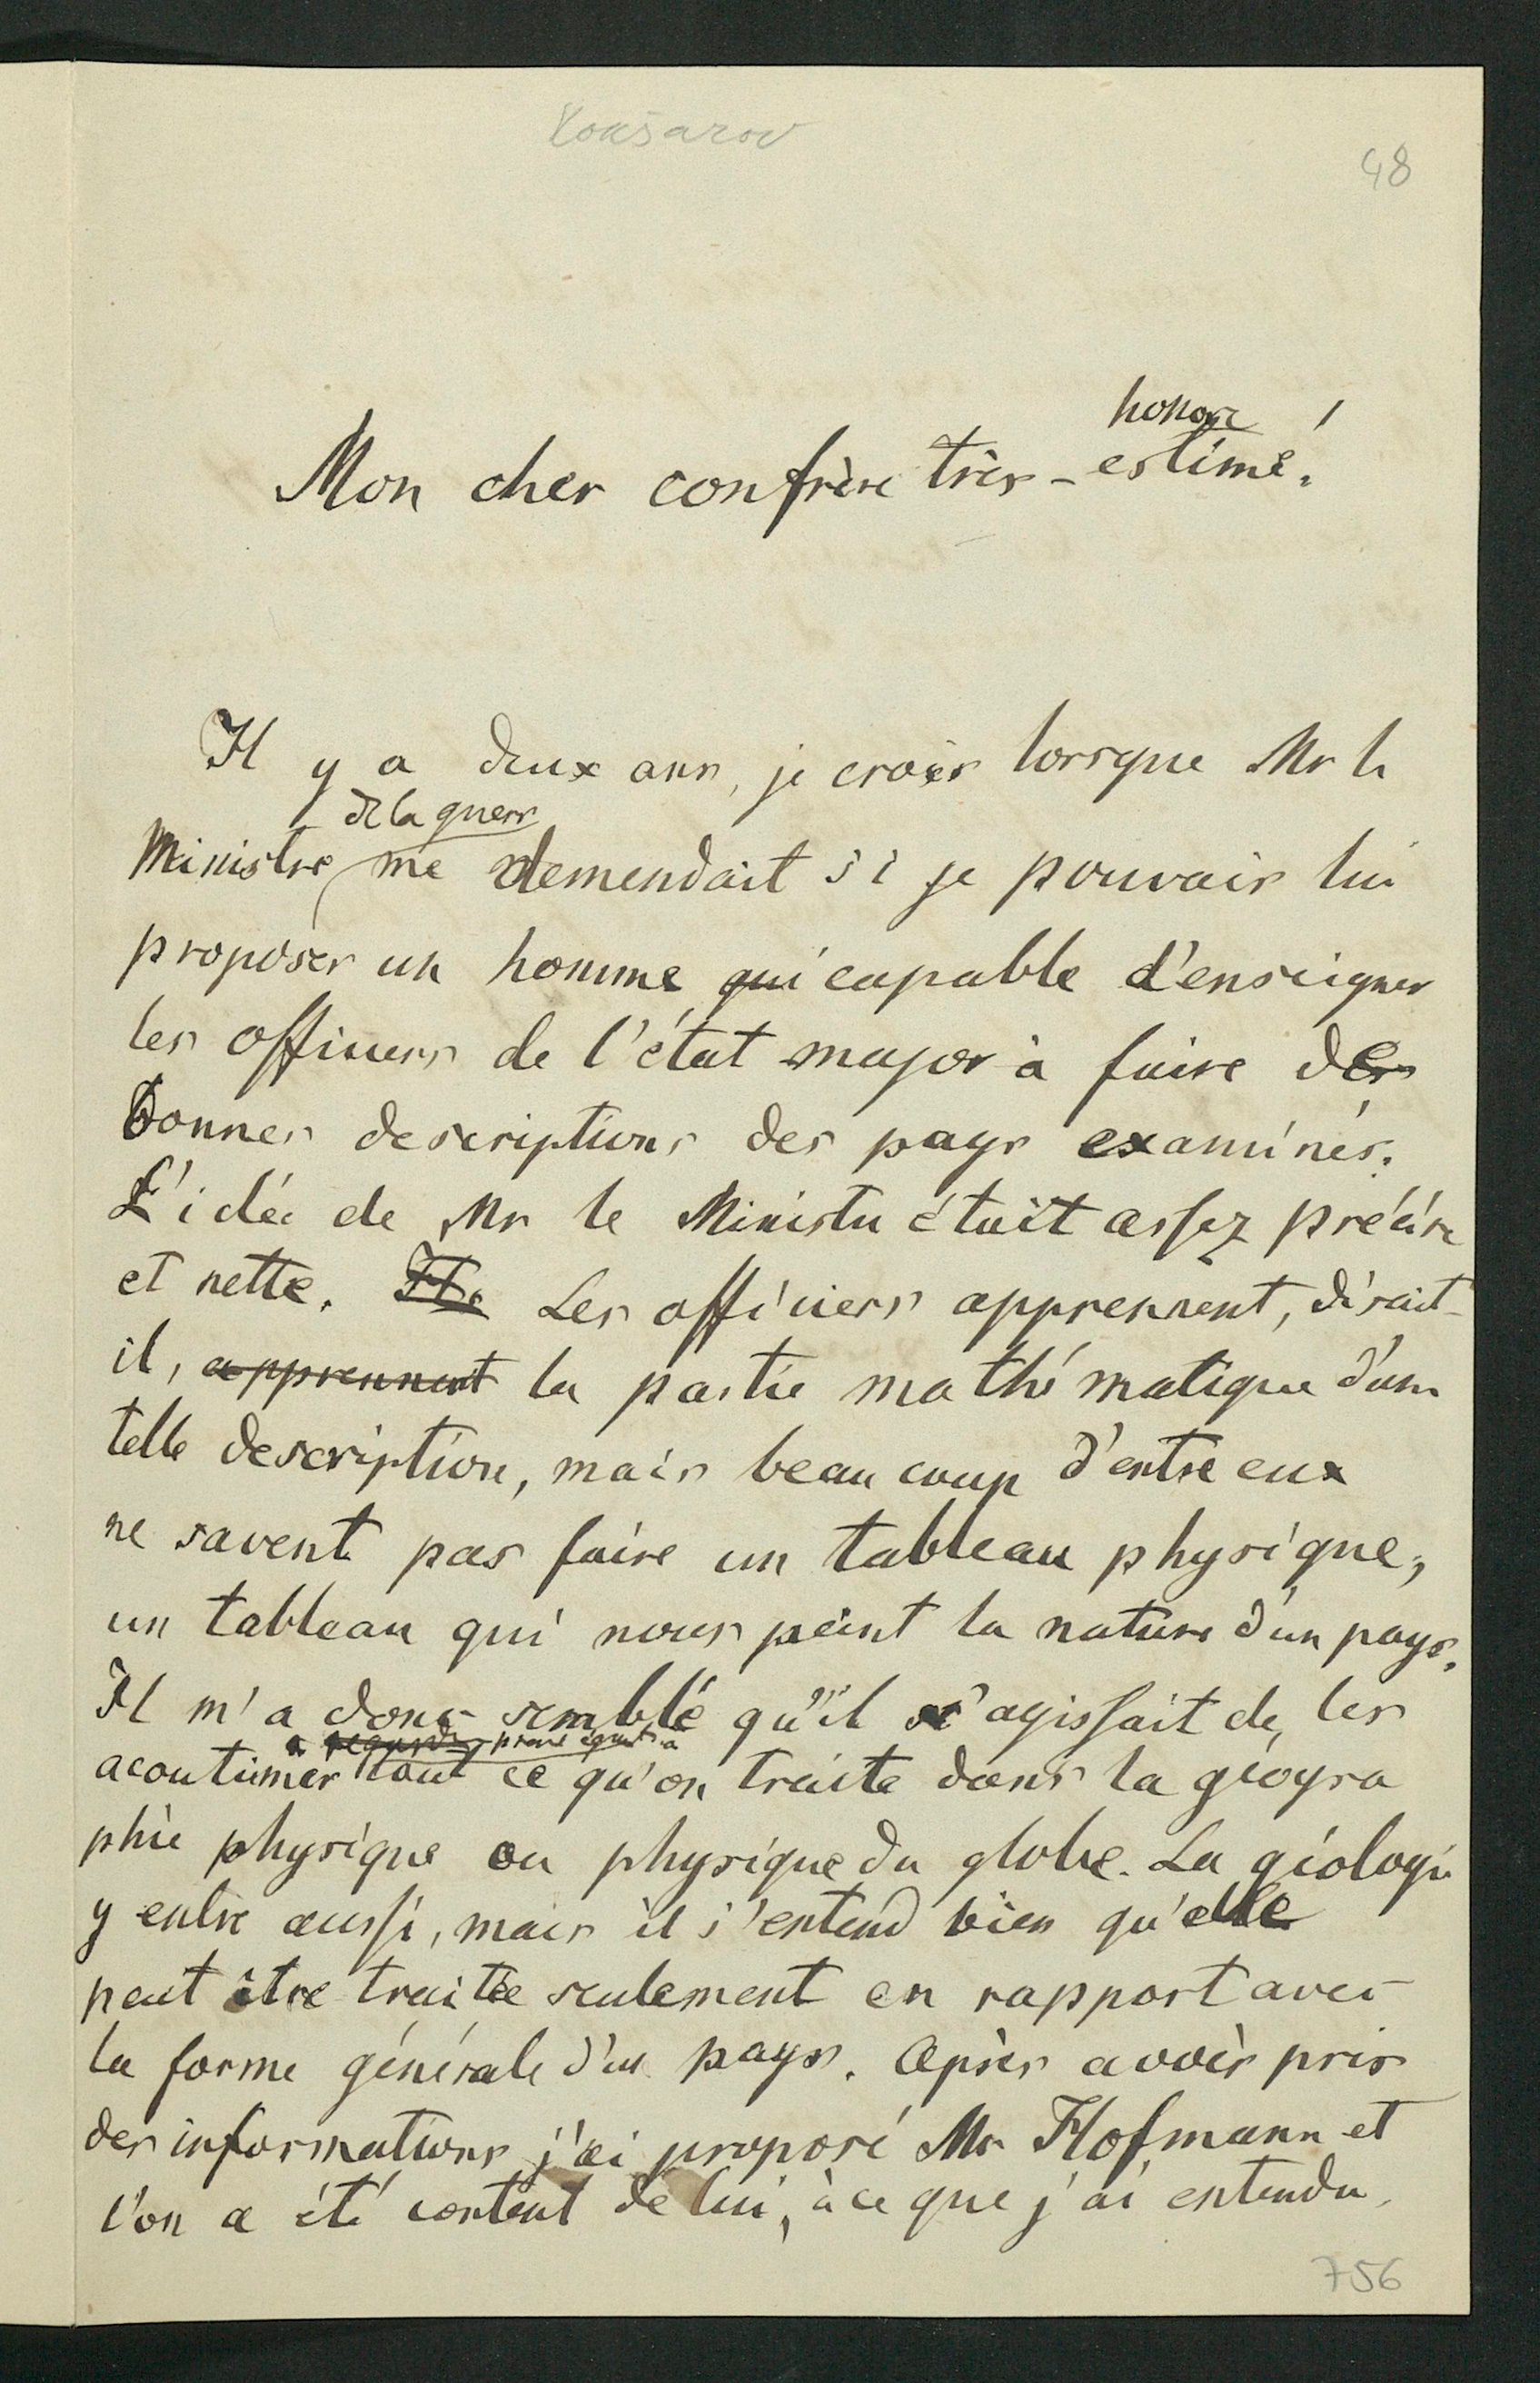 Koksarov
48
honoré
Mon cher confrère très-estimé!
Il y a deux ans, je crois lorsque Mr le
de la guerre
Ministre me demendait si je pouvais lui
proposer un homme qui capable d'enseigner
les officiers de l'état major à faire des
bonnes descriptions des pays examinés.
L'idée de Mr le Ministre était assez précise
et nette. Les officiers apprennent, disait-
il, apprennent la partie mathématique d'une
telle description, mais beaucoup d'entre eux
ne savent pas faire un tableau physique,
un tableau qui nous peint la nature d'un pays.
Il m'a donc semblé qu'il s'agissait de les
a regarder prenant égard à
acoutumer tout ce qu'on traite dans la géogra
phie physique ou physique du globe. La géologie
y entre aussi, mais il s'entend bien qu'elle
peut être traitée seulement en rapport avec
la forme générale d'un pays. Après avoir pris
des informations j'ai proposé Mr Hofmann et
l'on a été content de lui, à ce que j'ai entendu.
756